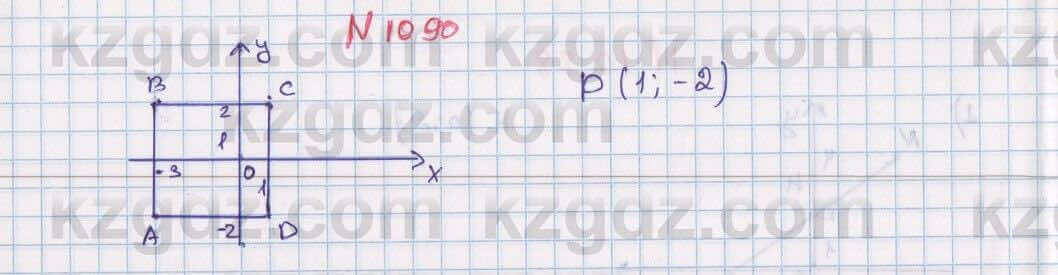 N 1090
y
B C
2
D (1; -2)
1
-3 0 x
1
A -2 D
kzgdz.com kzgdz.com kz
kzgdz.com
kzgdz.com kzgdz.com kz